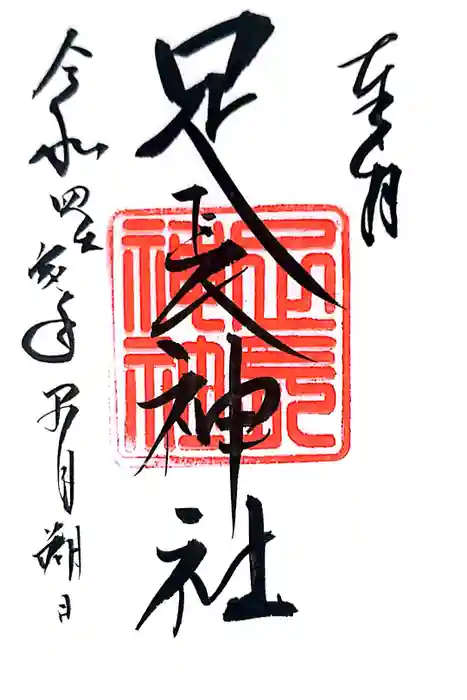 奉拝
足長神社
足長
神社
令和四壬寅年 月朔日